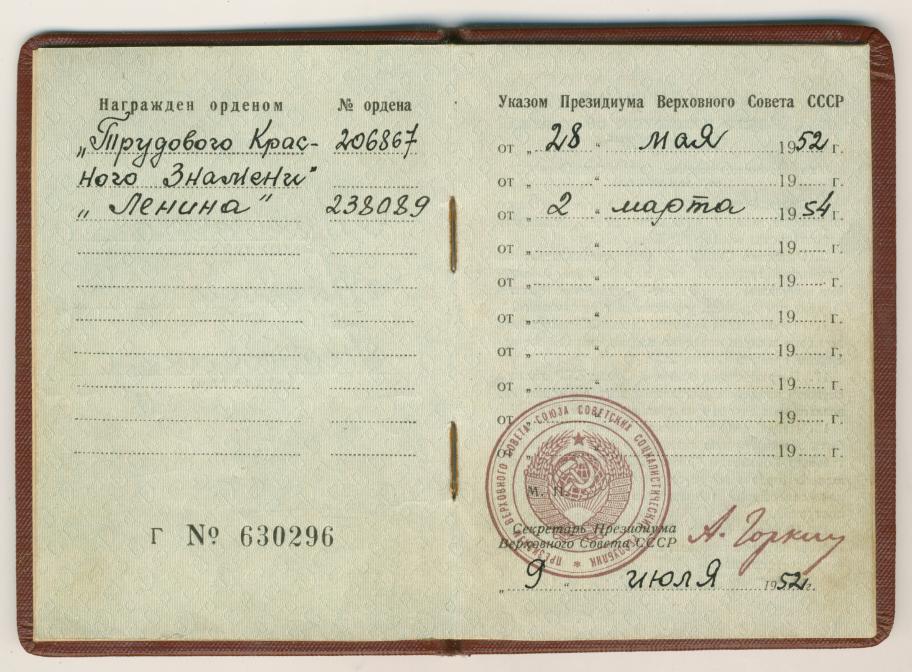 Награжден орденом № ордена
„Трудового Крас- 206867
ного Знамени"
„Ленина" 238089
Г № 630296
Указом Президиума Верховного Совета СССР
от „ 28 “ мая 1952 г.
от „ “ 19 г.
от „ 2 “ марта 1954 г.
от „ “ 19 г.
от „ “ 19 г.
от „ “ 19 г.
от „ “ 19 г.
от „ “ 19 г.
от „ “ 19 г.
от „ “ 19 г.
ПРЕЗИДИУМ ВЕРХОВНОГО СОВЕТА СОЮЗА СОВЕТСКИХ СОЦИАЛИСТИЧЕСКИХ РЕСПУБЛИК
М. П.
Секретарь Президиума
Верховного Совета СССР
А. Горкин
„ 9 “ июля 1952 г.